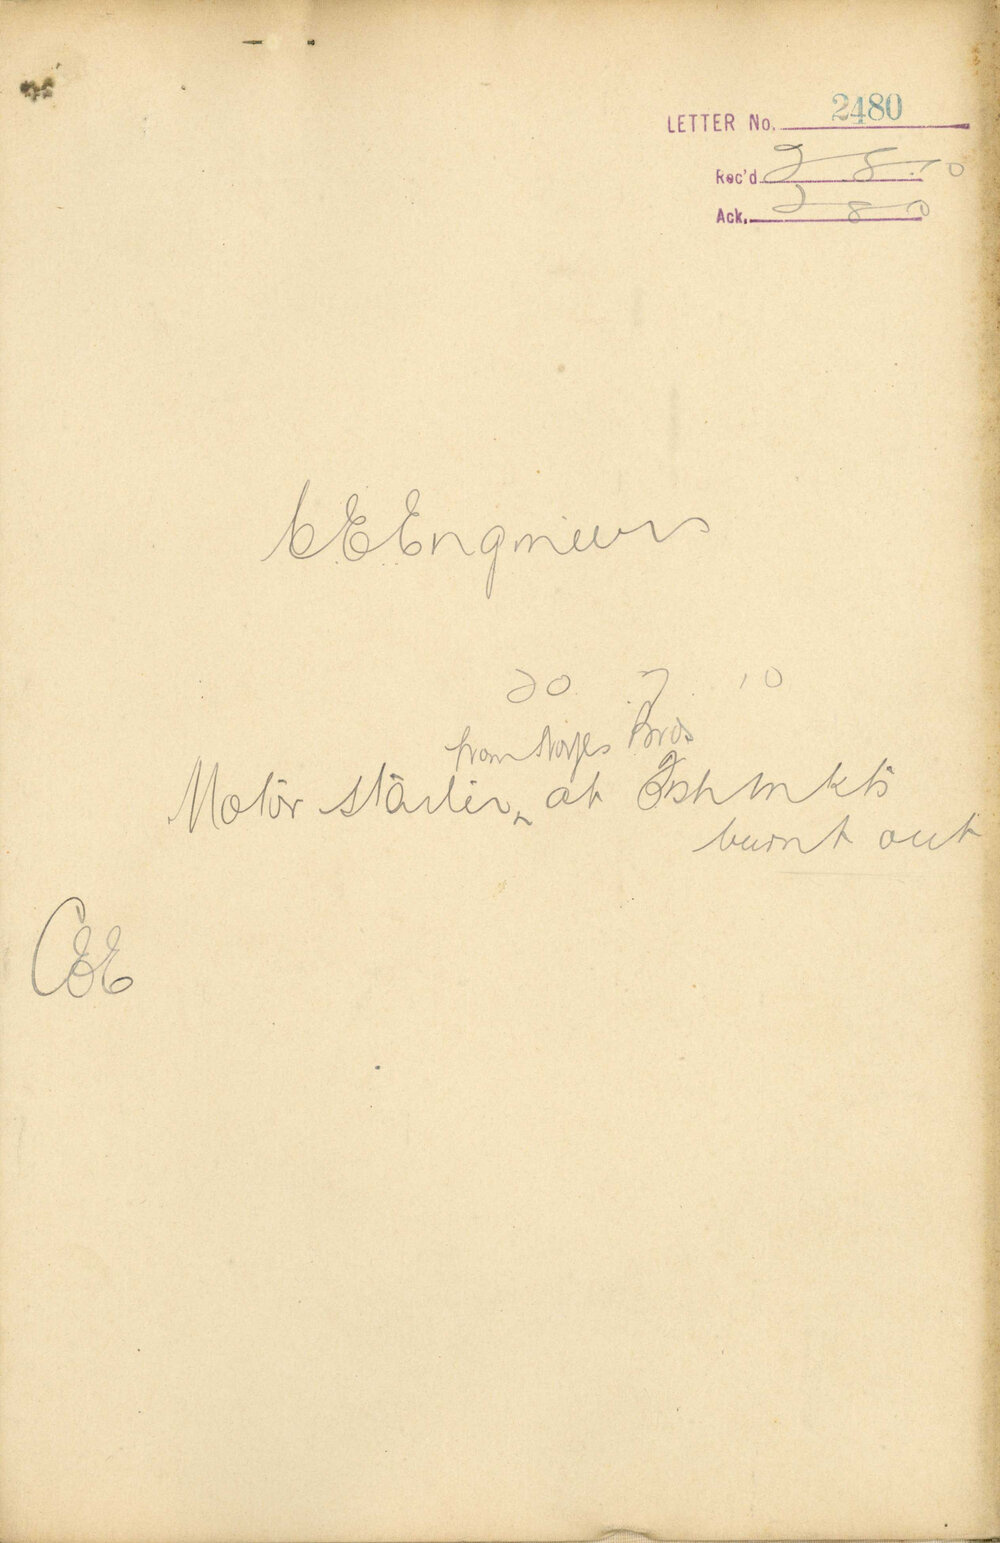 LETTER No. 2480
Rec'd 2 8 10
Ack. 2 8 10
CEEngineers
20 7 10
from Noyes Bros
Motor starter, at Fish Mkts
burnt out
CEE